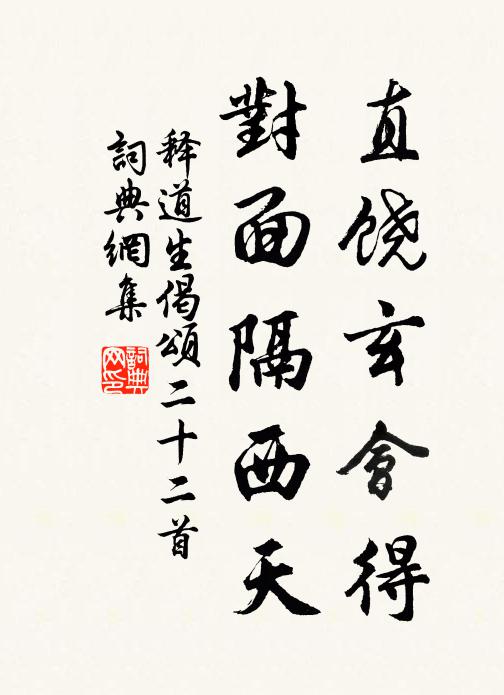 直饶玄會得
對面隔西天
释道生偈頌二十二首
詞典網集
詞典网印